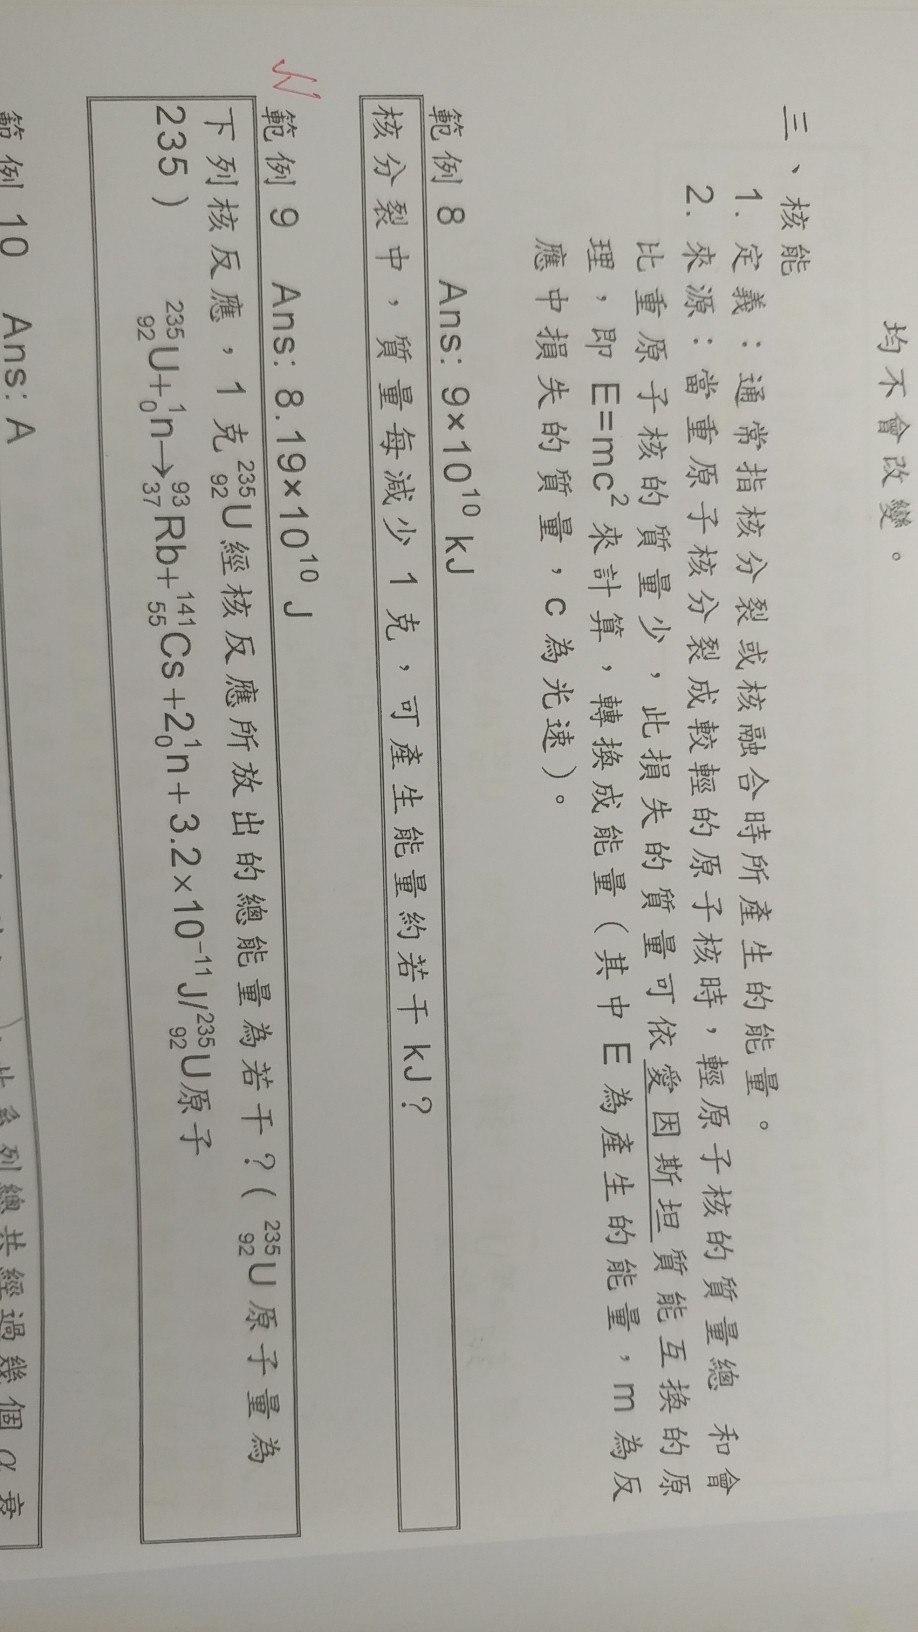 均不會改變。
三、核能
1. 定義：通常指核分裂或核融合時所產生的能量。
2. 來源：當重原子核分裂成較輕的原子核時，輕原子核的質量總和會
比重原子核的質量少，此損失的質量可依愛因斯坦質能互換的原
理，即 E=mc²來計算，轉換成能量（其中 E 為產生的能量，m 為反
應中損失的質量，c 為光速）。
範例 8 Ans: 9×10¹⁰ kJ
核分裂中，質量每減少 1 克，可產生能量約若干 kJ？
範例 9 Ans: 8.19×10¹⁰ J
下列核反應，1 克 ²³⁵₉₂U 經核反應所放出的總能量為若干？（ ²³⁵₉₂U 原子量為
235 ） ²³⁵₉₂U+¹₀n→⁹³₃₇Rb+¹⁴¹₅₅Cs+2¹₀n+3.2×10⁻¹¹J/²³⁵₉₂U原子
範例 10 Ans: A
系列總共經過幾個 α 衰